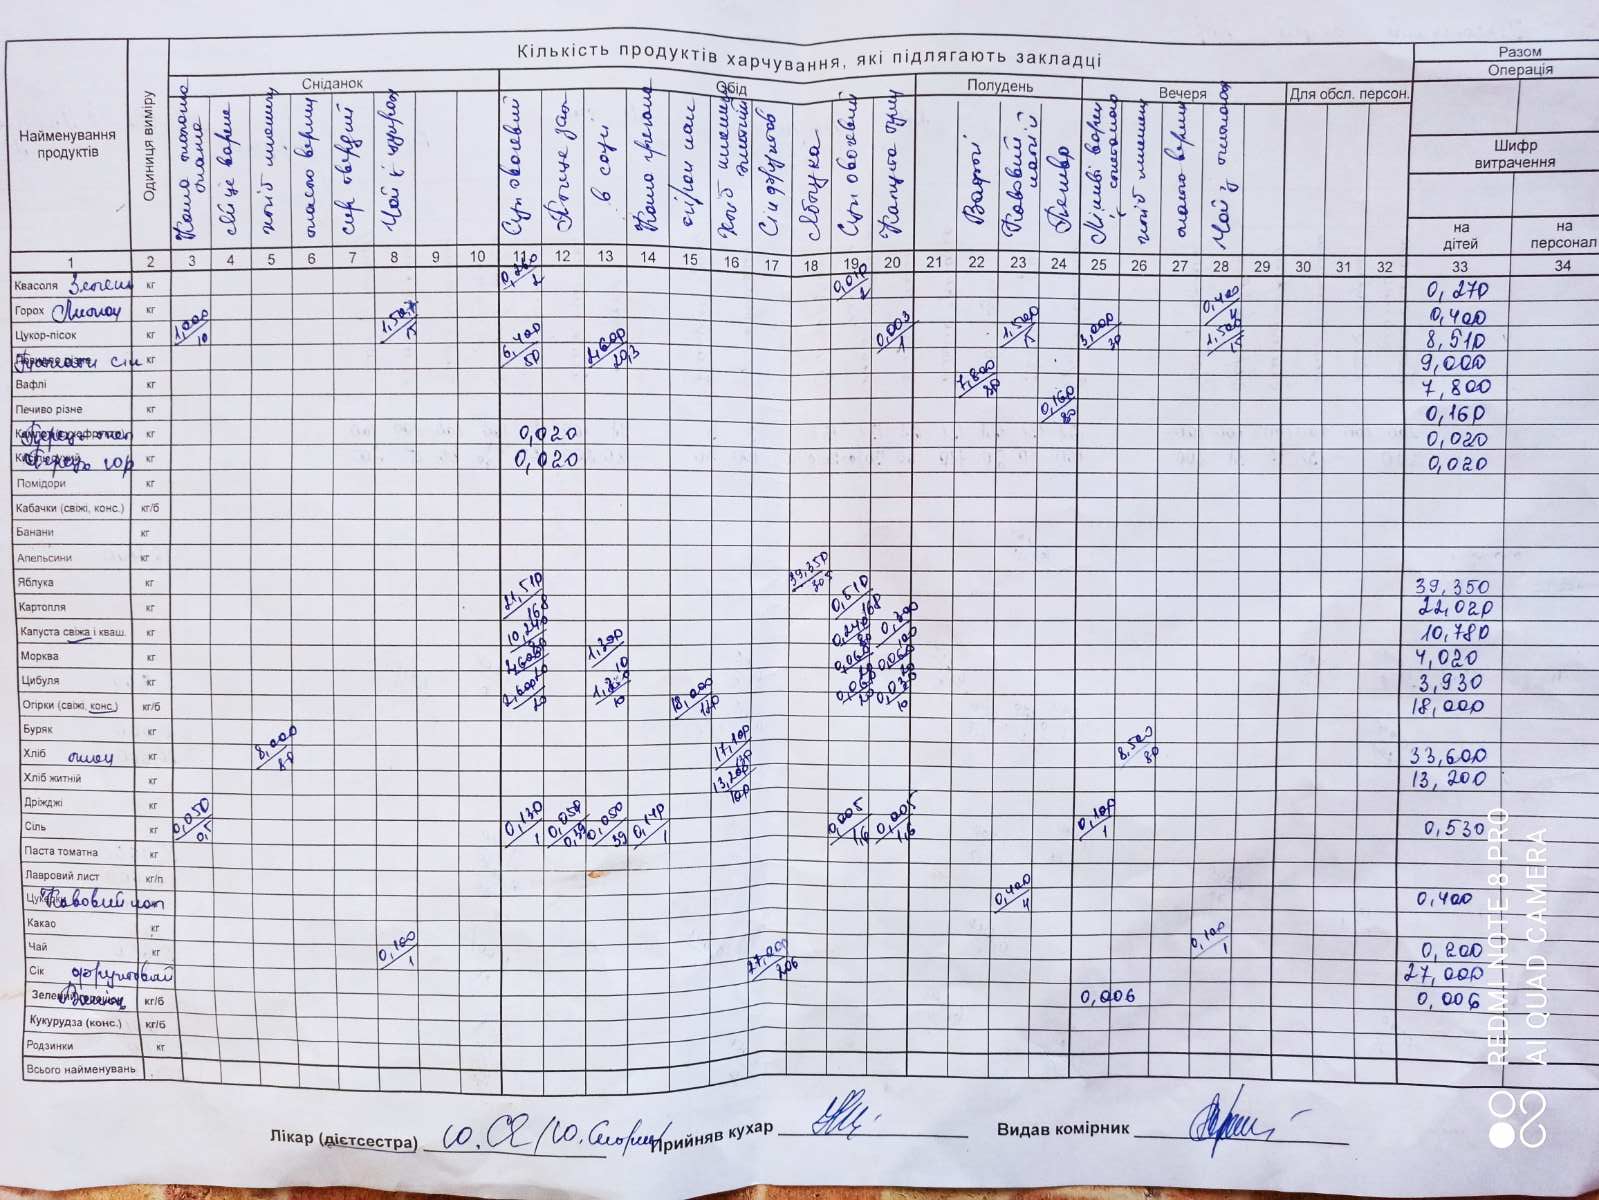 Кількість продуктів харчування, які підлягають закладці
Разом
Операція
Шифр витрачення
на дітей
на персонал
Найменування продуктів
Одиниця виміру
Сніданок
Обід
Полудень
Вечеря
Для обсл. персон.
Каша молочна
Яйце варене
хліб пшенич
масло верш
сир твердий
Чай з цукром
Суп овочевий
Птиця зап
в соусі
Каша гречана
огірки
Хліб пшенич житній
Сік фруктов
Яблука
Суп овочевий
Капуста туш
Вафлі
Кавовий напій
Печиво
Ліниві варен
хліб пшенич
масло верш
Чай з лимоном
1 2 3 4 5 6 7 8 9 10 11 12 13 14 15 16 17 18 19 20 21 22 23 24 25 26 27 28 29 30 31 32 33 34
Квасоля Зелень кг 0,260/2 0,010/2 0,270
Горох Лимон кг 0,400/4 0,400
Цукор-пісок кг 1,000/10 1,500/15 0,003/1 1,500/15 3,000/30 1,500/15 8,510
Томати кг 6,400/50 2,600/20,3 9,000
Вафлі кг 7,800/80 7,800
Печиво різне кг 0,160/80 0,160
Перець кг 0,020 0,020
Перець гор кг 0,020 0,020
Помідори кг
Кабачки (свіжі, конс.) кг/б
Банани кг
Апельсини кг
Яблука кг 39,350/305 39,350
Картопля кг 21,510/168 0,510/168 22,020
Капуста свіжа і кваш. кг 10,240/80 0,240/80 0,300/100 10,780
Морква кг 2,600/20 1,300/10 0,060/20 0,060/20 4,020
Цибуля кг 2,600/20 1,300/10 0,060/20 0,030/10 3,930
Огірки (свіжі, конс.) кг/б 18,000/140 18,000
Буряк кг
Хліб пшен кг 8,000/80 17,100/130 8,500/80 33,600
Хліб житній кг 13,200/100 13,200
Дріжджі кг
Сіль кг 0,050/0,5 0,130/1 0,050/0,39 0,050/39 0,140/1 0,005/1,6 0,005/1,6 0,100/1 0,530
Паста томатна кг
Лавровий лист кг/п
Кавовий нап 0,400/4 0,400
Какао кг
Чай кг 0,100/1 0,100/1 0,200
Сік фруктовий кг 27,000/206 27,000
Ванілін кг/б 0,006 0,006
Кукурудза (конс.) кг/б
Родзинки кг
Всього найменувань
Лікар (дієтсестра)
Прийняв кухар
Видав комірник
REDMI NOTE 8 PRO
AI QUAD CAMERA